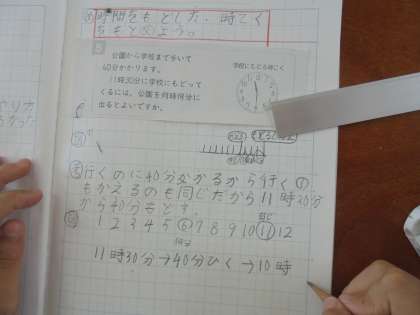 時間をもどした、時こく
をもとめよう。
公園から学校まで歩いて
40分かかります。
11時30分に学校にもどって
くるには、公園を何時何分に
出るとよいですか。
学校にもどる時こく
行くのに40分かかるから行く
もかえるのも同じだから11時30分
から40分もどす。
1 2 3 4 5 6 7 8 9 10 11 12
11時30分→40分ひく→10時